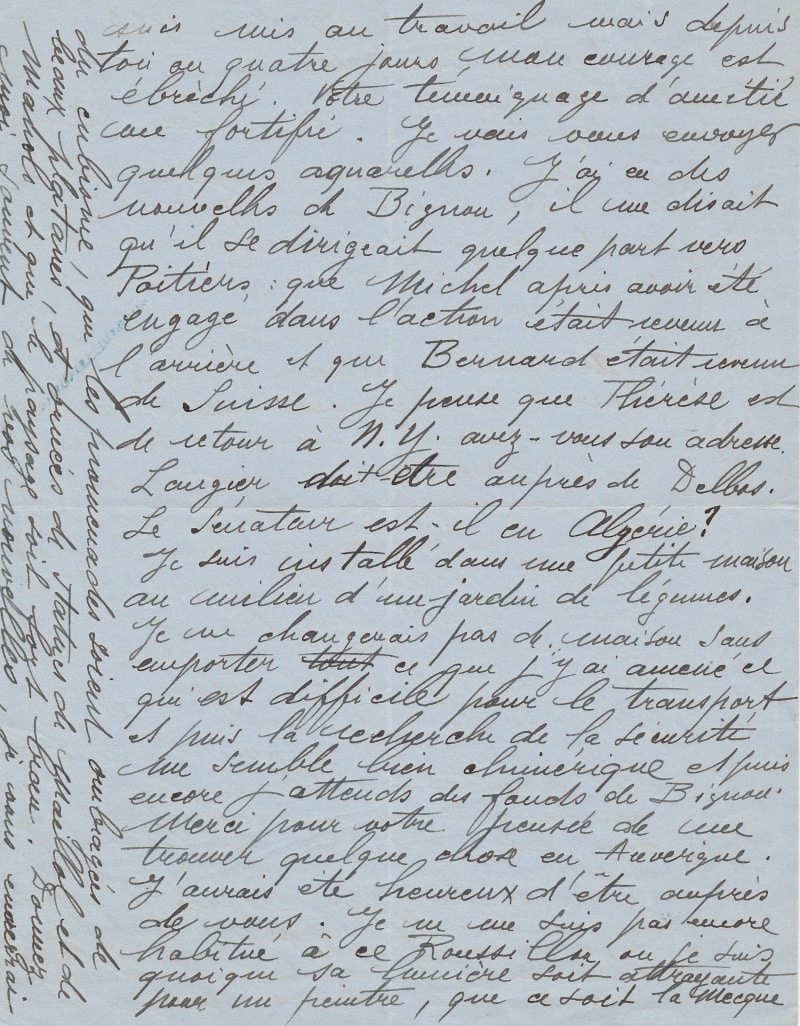 suis mis au travail mais depuis
trois ou quatre jours mon courage est
ébréché. Votre témoignage d'amitié
me fortifie. Je vais vous envoyer
quelques aquarelles. J'ai eu des
nouvelles de Bignou, il me disait
qu'il se dirigeait quelque part vers
Poitiers : que Michel après avoir été
engagé dans l'action était revenu à
l'arrière et que Bernard était revenu
de Suisse. Je pense que Thérèse est
de retour à N.Y. avez-vous son adresse.
Laugier doit-être auprès de Delbos.
Le Sénateur est-il en Algérie?
Je suis installé dans une petite maison
au milieu d'un jardin de légumes.
Je ne changerais pas de maison sans
emporter tout ce que j'y ai amené ce
qui est difficile pour le transport
et puis la recherche de la sécurité
me semble bien chimérique et puis
encore j'attends des fonds de Bignou.
Merci pour votre pensée de me
trouver quelque chose en Auvergne.
J'aurais été heureux d'être auprès
de vous. Je ne me suis pas encore
habitué à ce Roussillon ou je suis
quoique sa lumière soit attrayante
pour un peintre, que ce soit la Mecque
du cubisme, que les promenades soient ombragées de
beaux platanes, et ornées de statues de Maillol et de
Manolo et que le paysage soit fort beau. Donnez
moi souvent de vos nouvelles, je vous enverrai